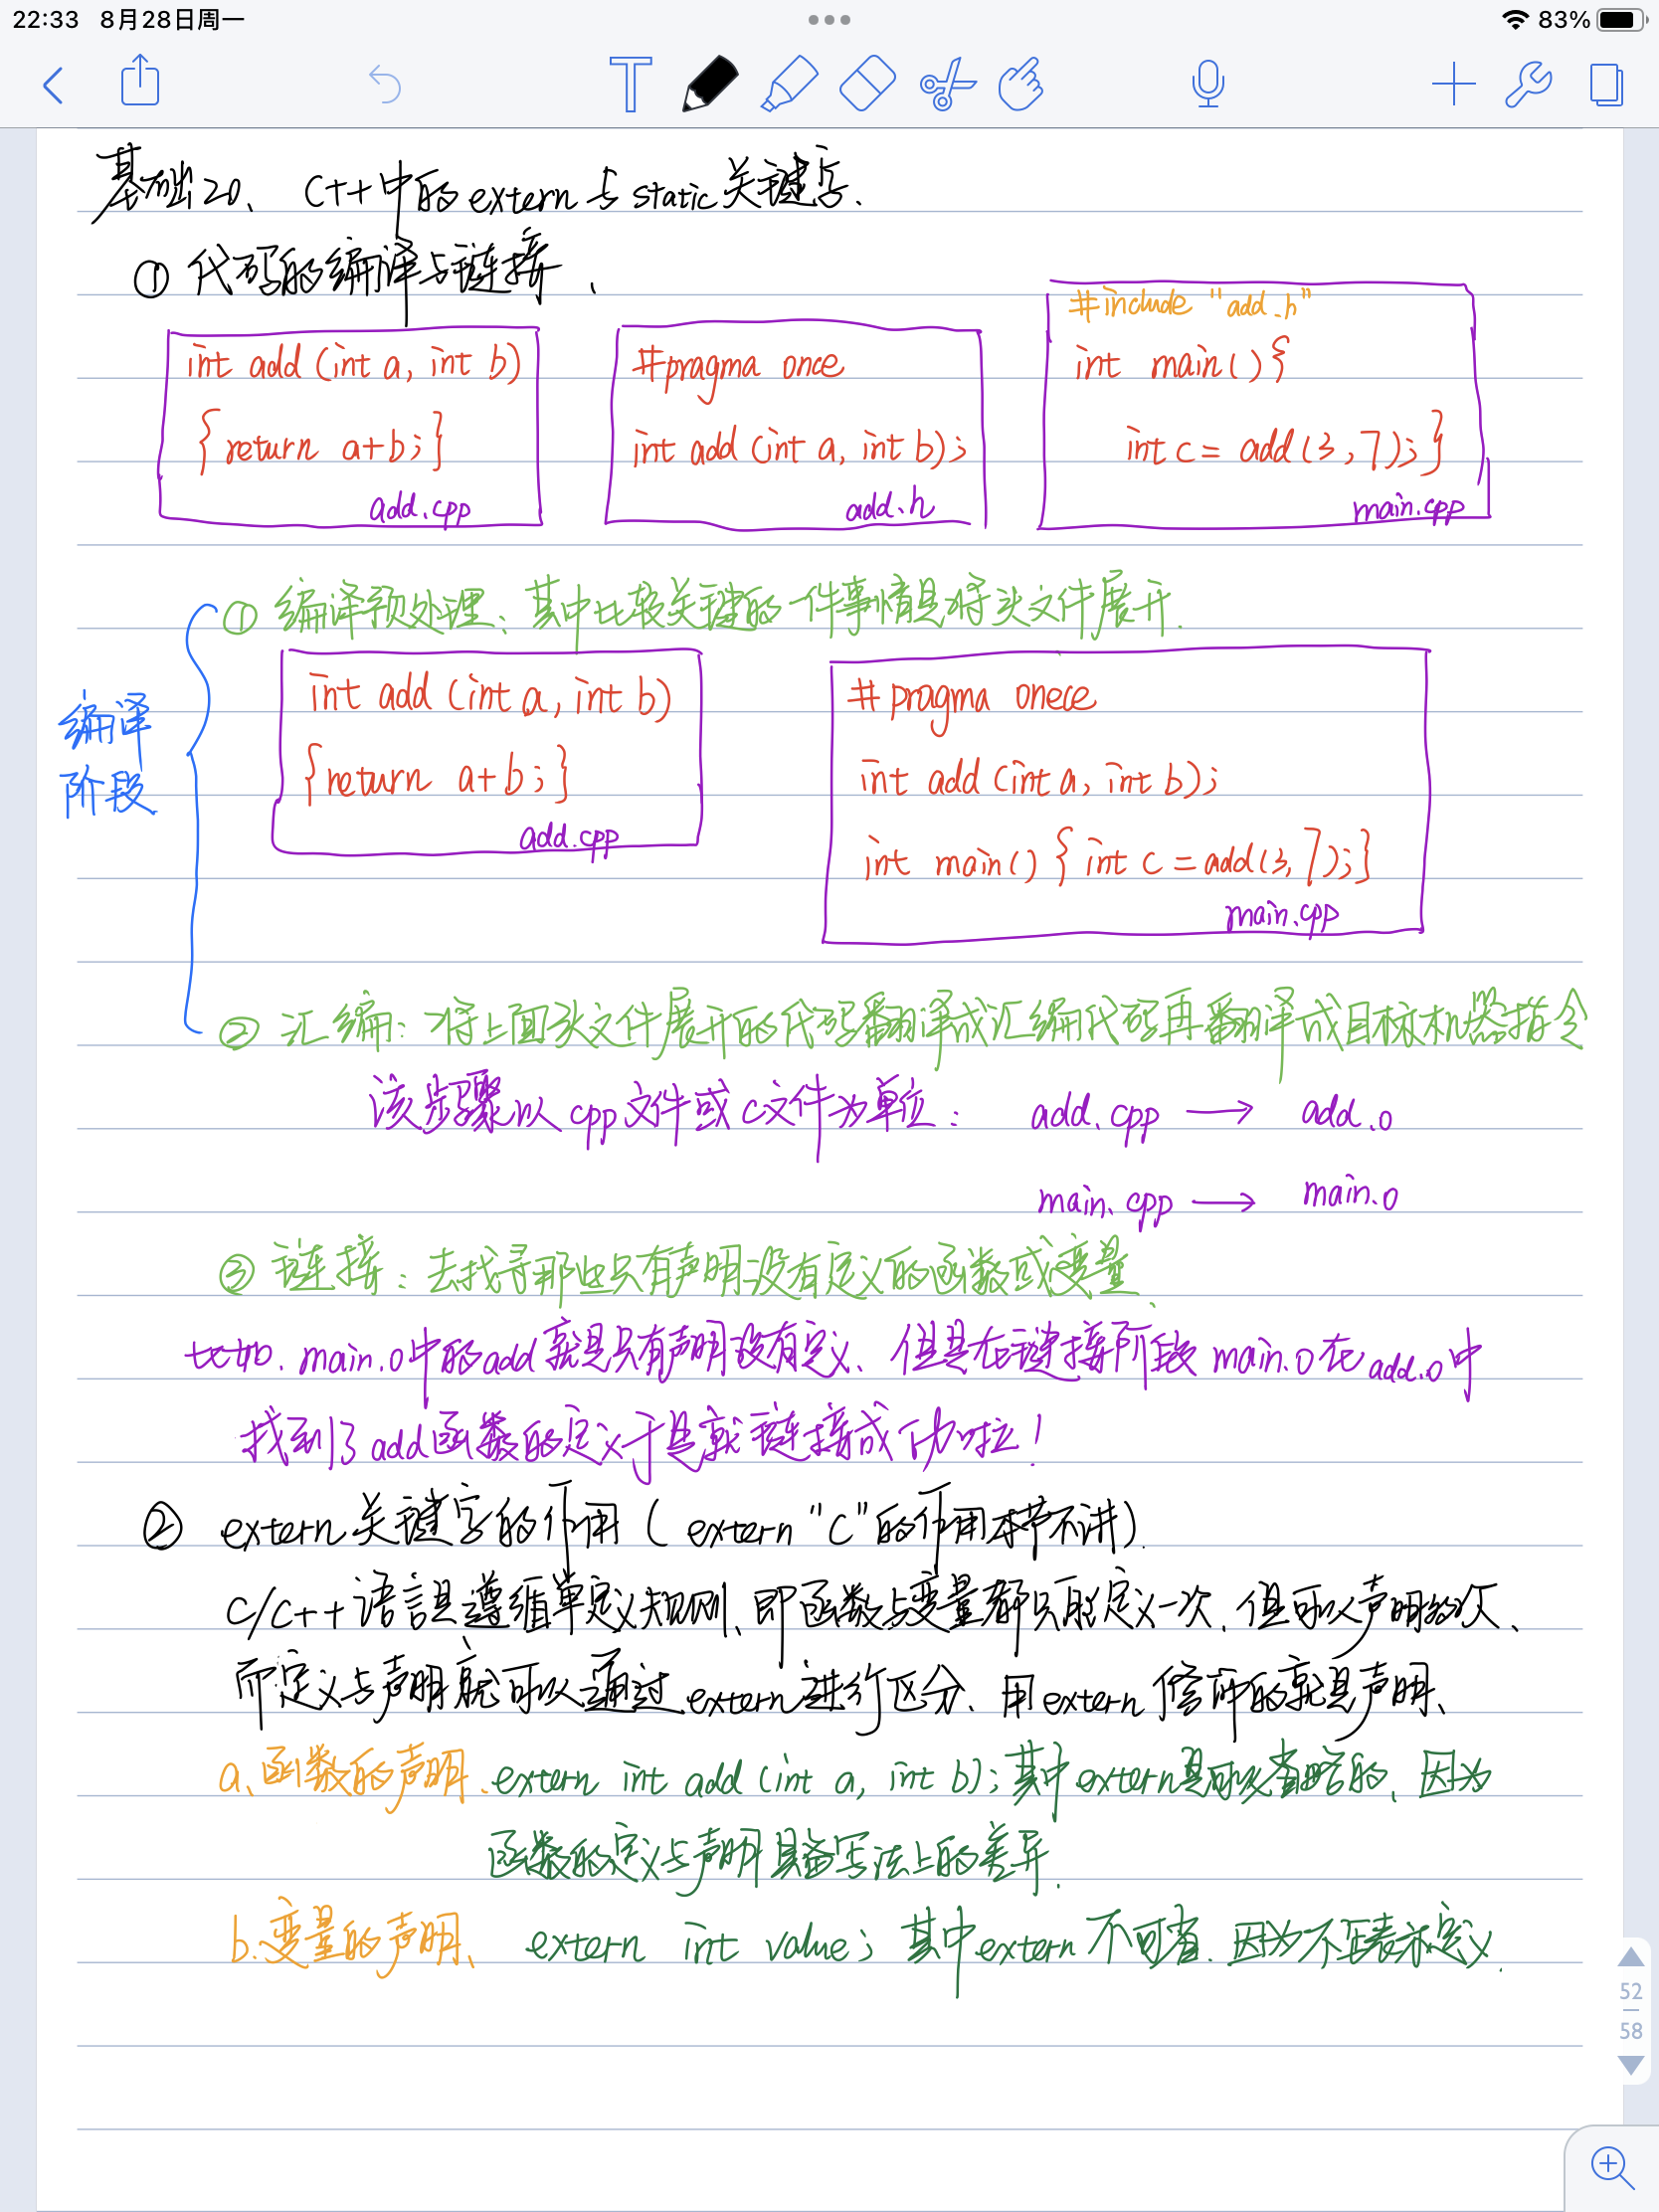 22:33 8月28日周一
83%
基础20、C++中的extern与static关键字.
① 代码的编译与链接.
int add (int a, int b)
{return a+b;}
add.cpp
#pragma once
int add (int a, int b);
add.h
#include "add.h"
int main() {
int c = add(3,7);}
main.cpp
① 编译预处理: 其中比较关键的一件事情是将头文件展开.
编译
阶段
int add (int a, int b)
{return a+b;}
add.cpp
# pragma onece
int add (int a, int b);
int main() { int c = add(3,7);}
main.cpp
② 汇编: 将上面头文件展开的代码翻译成汇编代码再翻译成目标机器指令
该步骤以cpp文件或c文件为单位: add.cpp → add.o
main.cpp → main.o
③ 链接: 去找寻那些只有声明没有定义的函数或变量.
main.o中的add就是只有声明没有定义、但是在链接阶段main.o在add.o中
找到了add函数的定义于是就链接成功啦!
② extern关键字的作用 (extern "C"的作用本节不讲).
C/C++语言是遵循单定义规则、即函数与变量都只能定义一次、但可以声明多次、
而定义与声明就可以通过extern进行区分、用extern修饰的就是声明、
a、函数的声明、extern int add (int a, int b); 其中extern是可以省略的、因为
函数的定义与声明具备写法上的差异.
b.变量的声明、 extern int value; 其中extern不可省.因为不写表示定义.
52
58